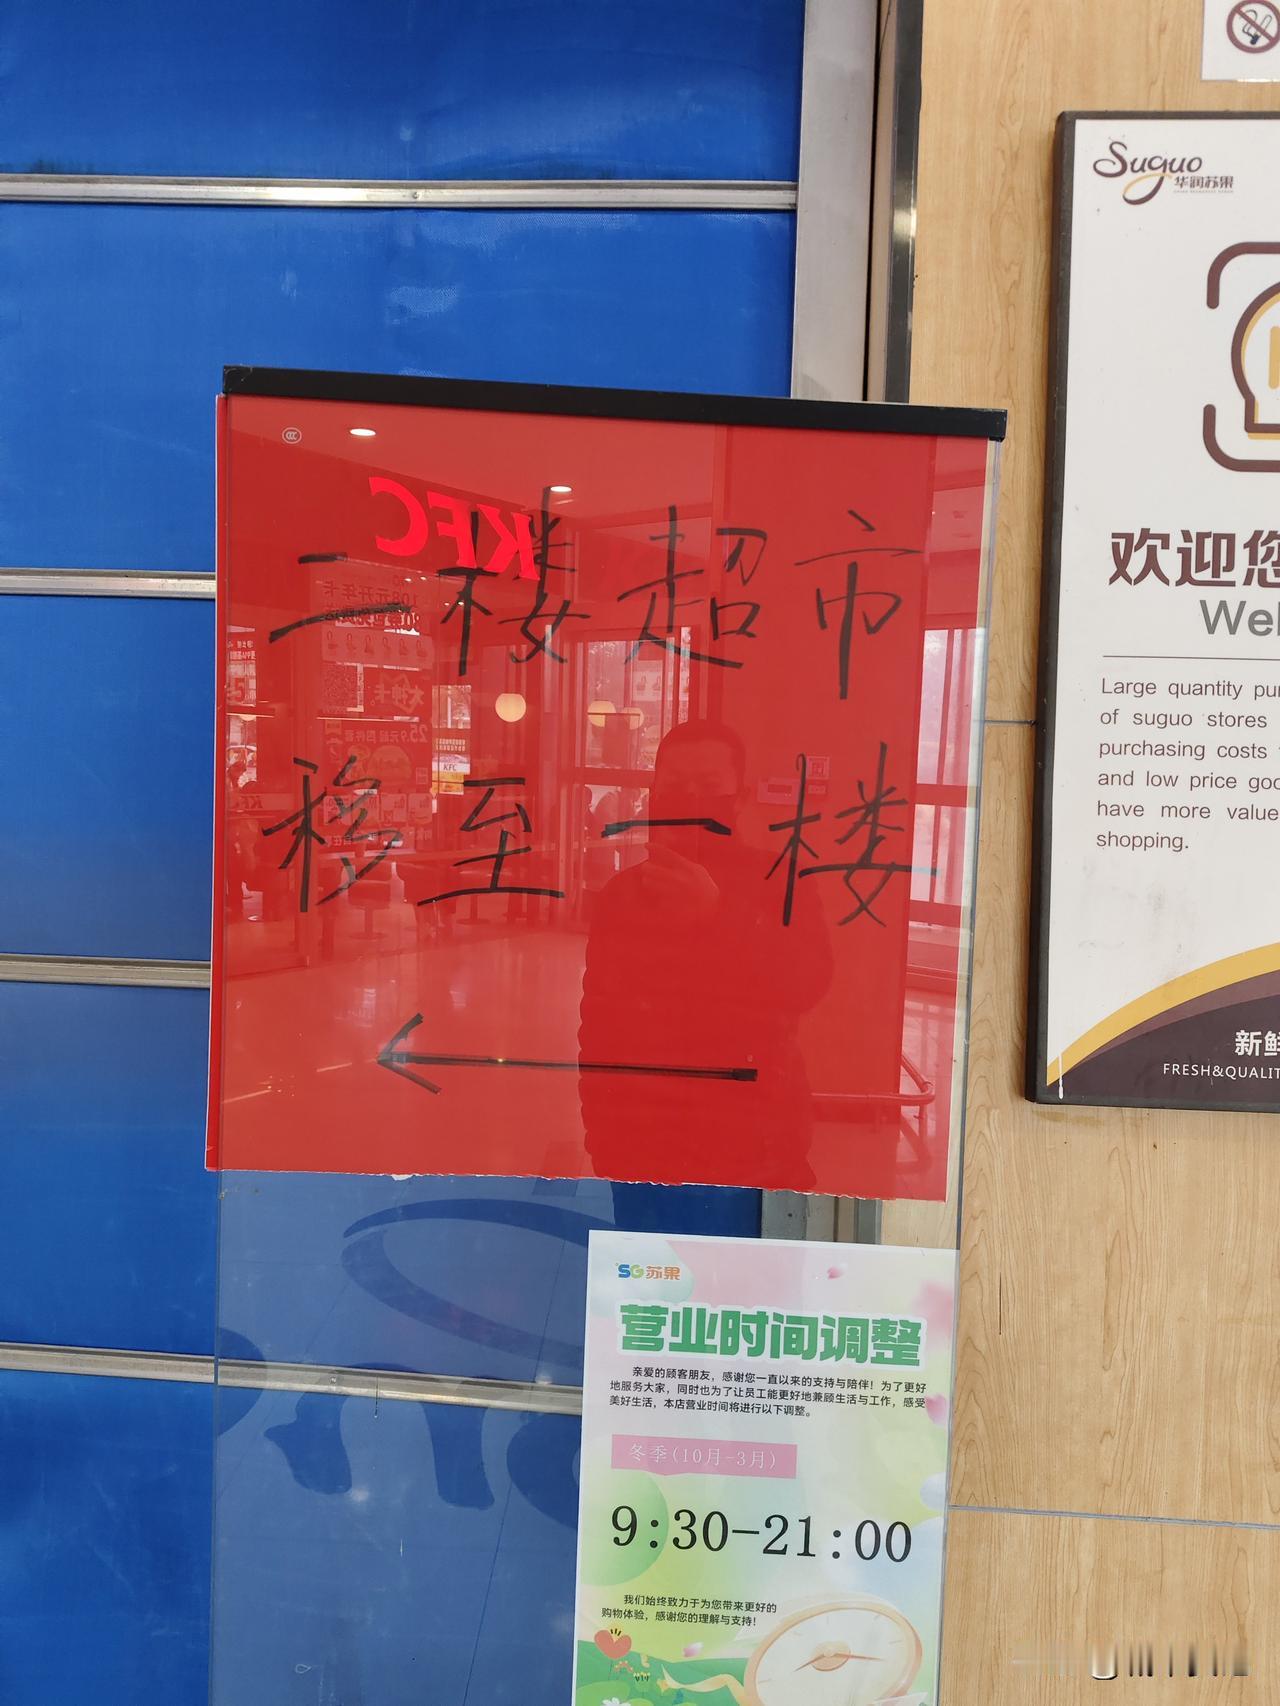 二楼超市
移至一楼
KFC
Suguo
华润苏果
欢迎您
Wel
Large quantity pu
of suguo stores
purchasing costs
and low price goo
have more value
shopping.
新鲜
FRESH&QUALIT
SG苏果
营业时间调整
亲爱的顾客朋友，感谢您一直以来的支持与陪伴！为了更好
地服务大家，同时也为了让员工能更好地兼顾生活与工作，感受
美好生活，本店营业时间将进行以下调整。
冬季(10月-3月)
9:30-21:00
我们始终致力于为您带来更好的
购物体验，感谢您的理解与支持！